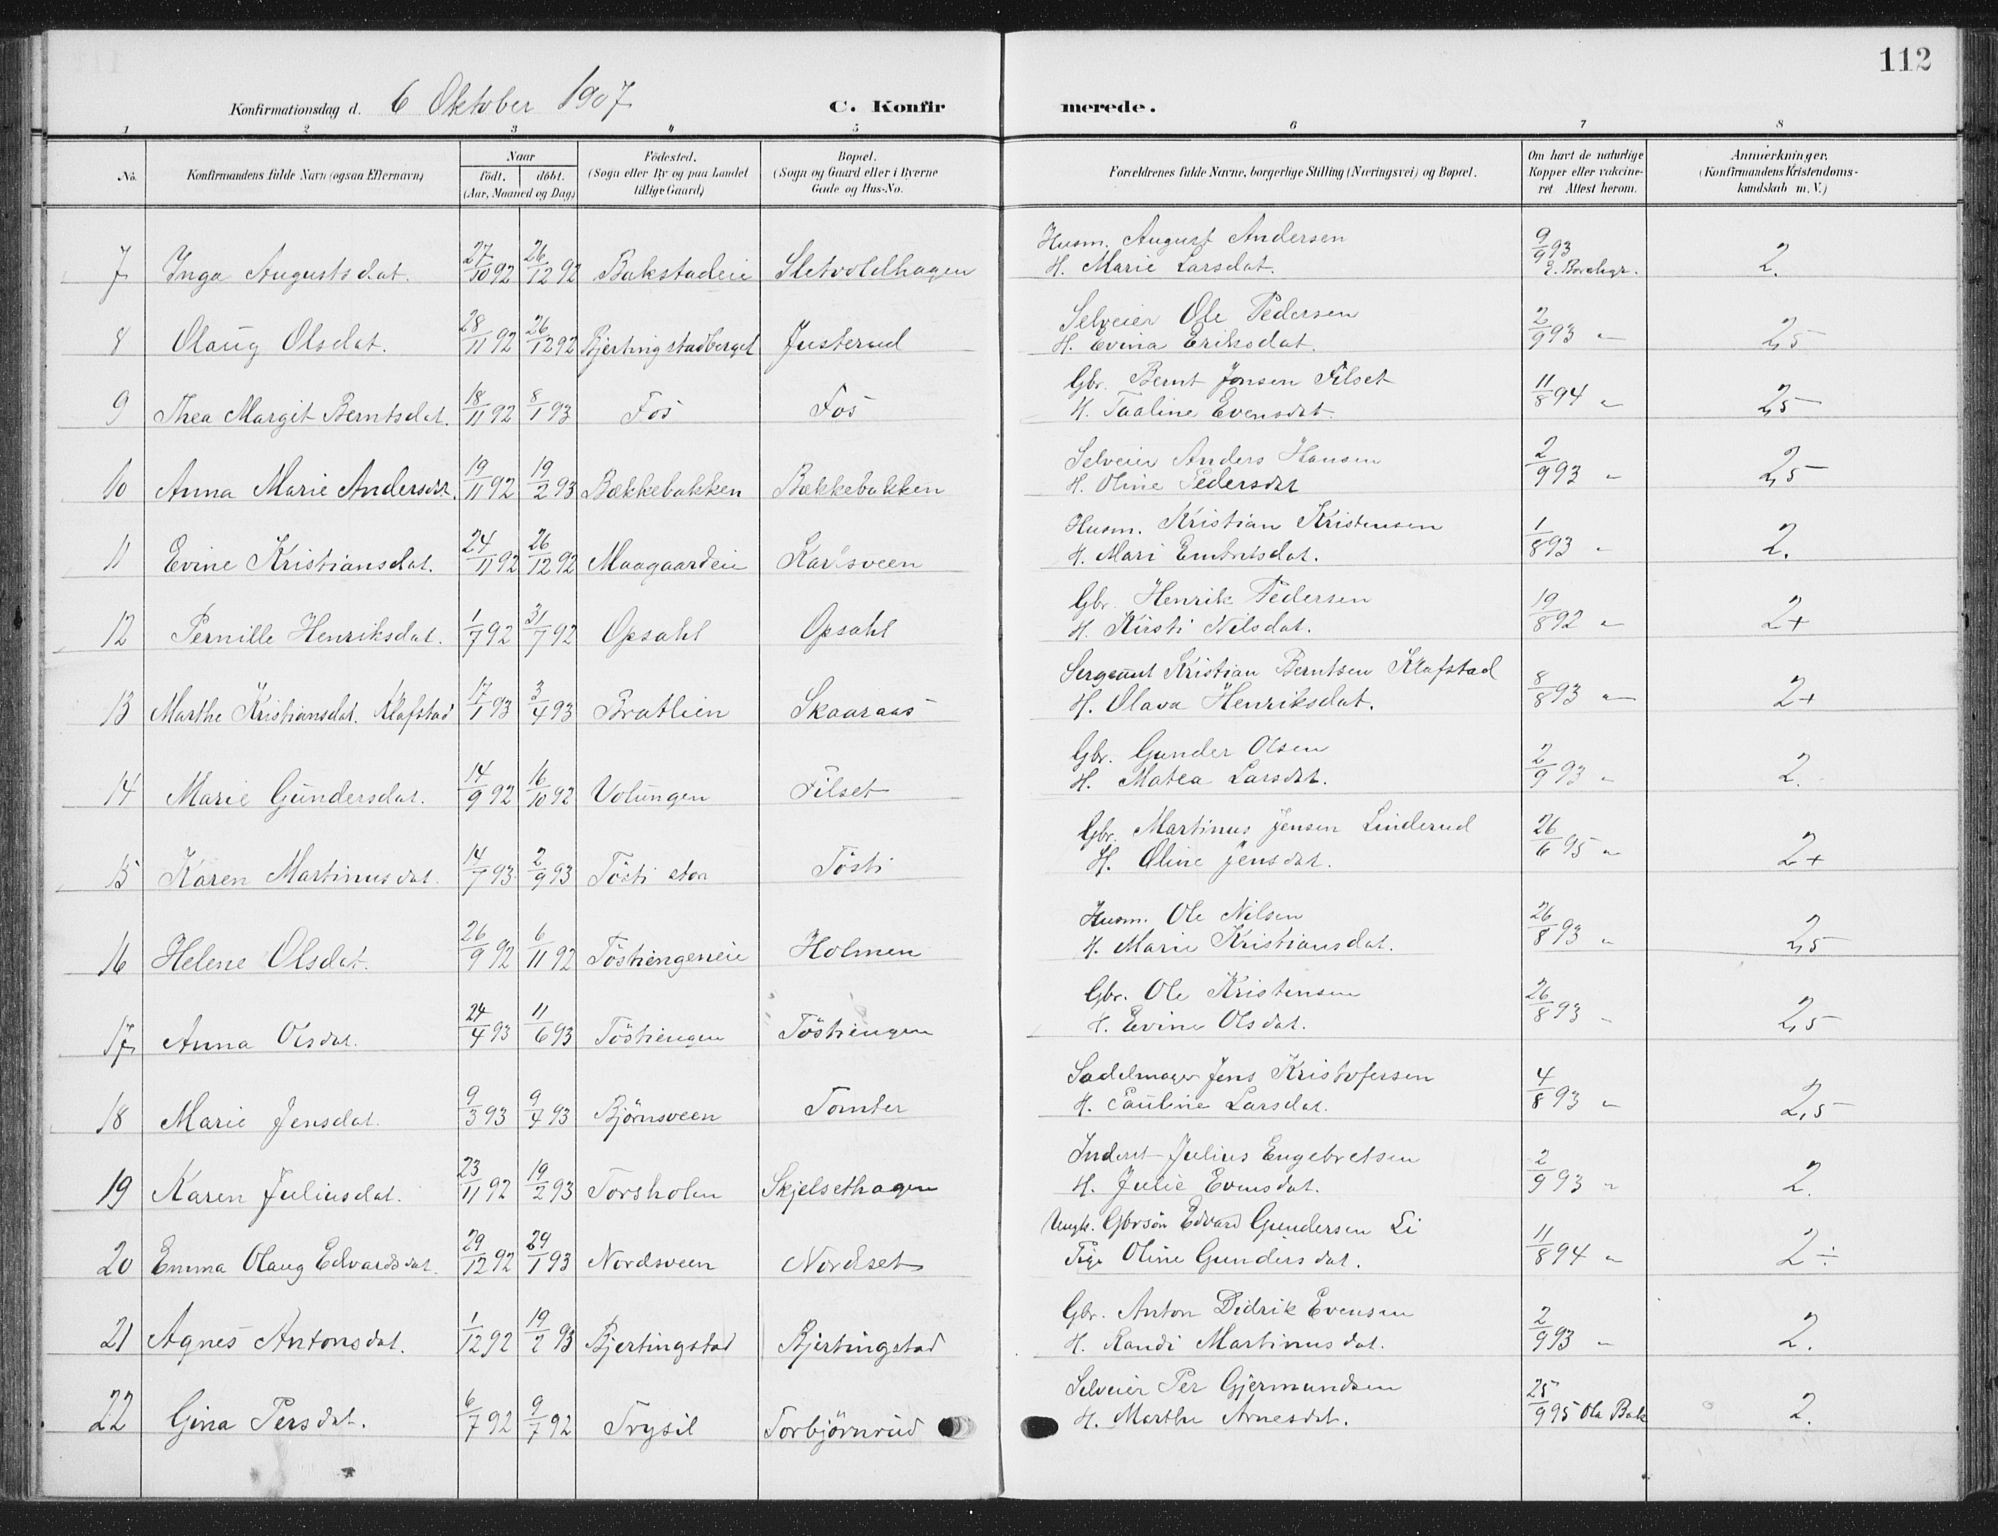 112
Konfirmationsdag d. 6 Oktober 1907 C. Konfirmerede.
1 2 3 4 5 6 7 8
No. Konfirmandens fulde Navn (ogsaa Efternavn) Naar Födt. döbt. (Aar, Maaned og Dag) Födested. (Sogn eller By og paa Landet tillige Gaard) Bopæl. (Sogn og Gaard eller i Byerne Gade og Hus-No. Forældrenes fulde Navne, borgerlige Stilling (Næringsvei) og Bopæl. Om havt de naturlige Kopper eller vakcineret. Attest herom. Anmærkninger. (Konfirmandens Kristendomskundskab m. V.)
7 Inga Augustsdat. 27/10 92 26/12 92 Bakstadeie Sletvoldhagen Husm. August Andersen 9/9 93 2.
H. Marie Larsdat.
8 Olaug Olsdat. 28/11 92 26/12 92 Bjertingstadberget Justerud Selveier Ole Pedersen 2/9 93 " 2,5
H. Evina Eriksdat.
9 Thea Margit Berntsdat. 18/11 92 8/1 93 Fos Fos Gbr. Bernt Jonsen Filset 11/8 94 " 2,5
H. Taaline Evensdat.
10 Anna Marie Andersdat. 19/11 92 19/2 93 Bækkebakken Bækkebakken Selveier Anders Hansen 2/9 93 " 2,5
H. Oline Pedersdat
11 Evine Kristiansdat. 24/11 92 26/12 92 Maagaardeie Karlsveen Husm. Kristian Kristensen 1/8 93 " 2.
H. Mari Embretsdat.
12 Pernille Henriksdat. 1/7 92 31/7 92 Opsahl Opsahl Gbr. Henrik Pedersen 19/8 92 " 2+
H. Kirsti Nilsdat.
13 Marthe Kristiansdat. Klafstad 17/1 93 3/4 93 Bratlien Skaaraas Sergeant Kristian Berntsen Klafstad 8/8 93 " 2+
H. Olava Henriksdat.
14 Marie Gundersdat. 14/9 92 16/10 92 Volungen Filset Gbr. Gunder Olsen 2/9 93 " 2.
H. Matea Larsdat.
15 Karen Martinusdat. 14/7 93 2/9 93 Tösti stor Tösti Gbr. Martinus Jensen Linderud 26/6 95 " 2+
H. Oline Jensdat.
16 Helene Olsdat. 26/9 92 6/11 92 Töstiengeneie Holmen Husm. Ole Nilsen 26/8 93 " 2,5
H. Marie Kristiansdat.
17 Anna Olsdat. 24/4 93 11/6 93 Töstiengen Töstiengen Gbr. Ole Kristensen 26/8 93 " 2,5
H. Evine Olsdat.
18 Marie Jensdat. 9/3 93 9/4 93 Björnsveen Tomter Sadelmager Jens Kristofersen 4/8 93 " 2,5
H. Pauline Larsdat.
19 Karen Juliusdat. 23/11 92 19/2 93 Torsholen Skjelsethagen Inderst Julius Engebretsen 2/9 93 " 2.
H. Julie Evensdat.
20 Emma Olaug Edvardsdat. 29/12 92 29/1 93 Nordsveen Nordset Ungk. Gbrsön Edvard Gundersen Li 11/8 94 " 2÷
Pige Oline Gundersdat.
21 Agnes Antonsdat. 1/12 92 19/2 93 Bjertingstad Bjertingstad Gbr. Anton Didrik Evensen 2/9 93 " 2.
H. Randi Martinusdat.
22 Gina Persdat. 6/7 92 9/7 92 Trysil Torbjörnrud Selveier Per Gjermundsen 25/9 95 Ola Bak 2.
H. Marthe Arnesdat.